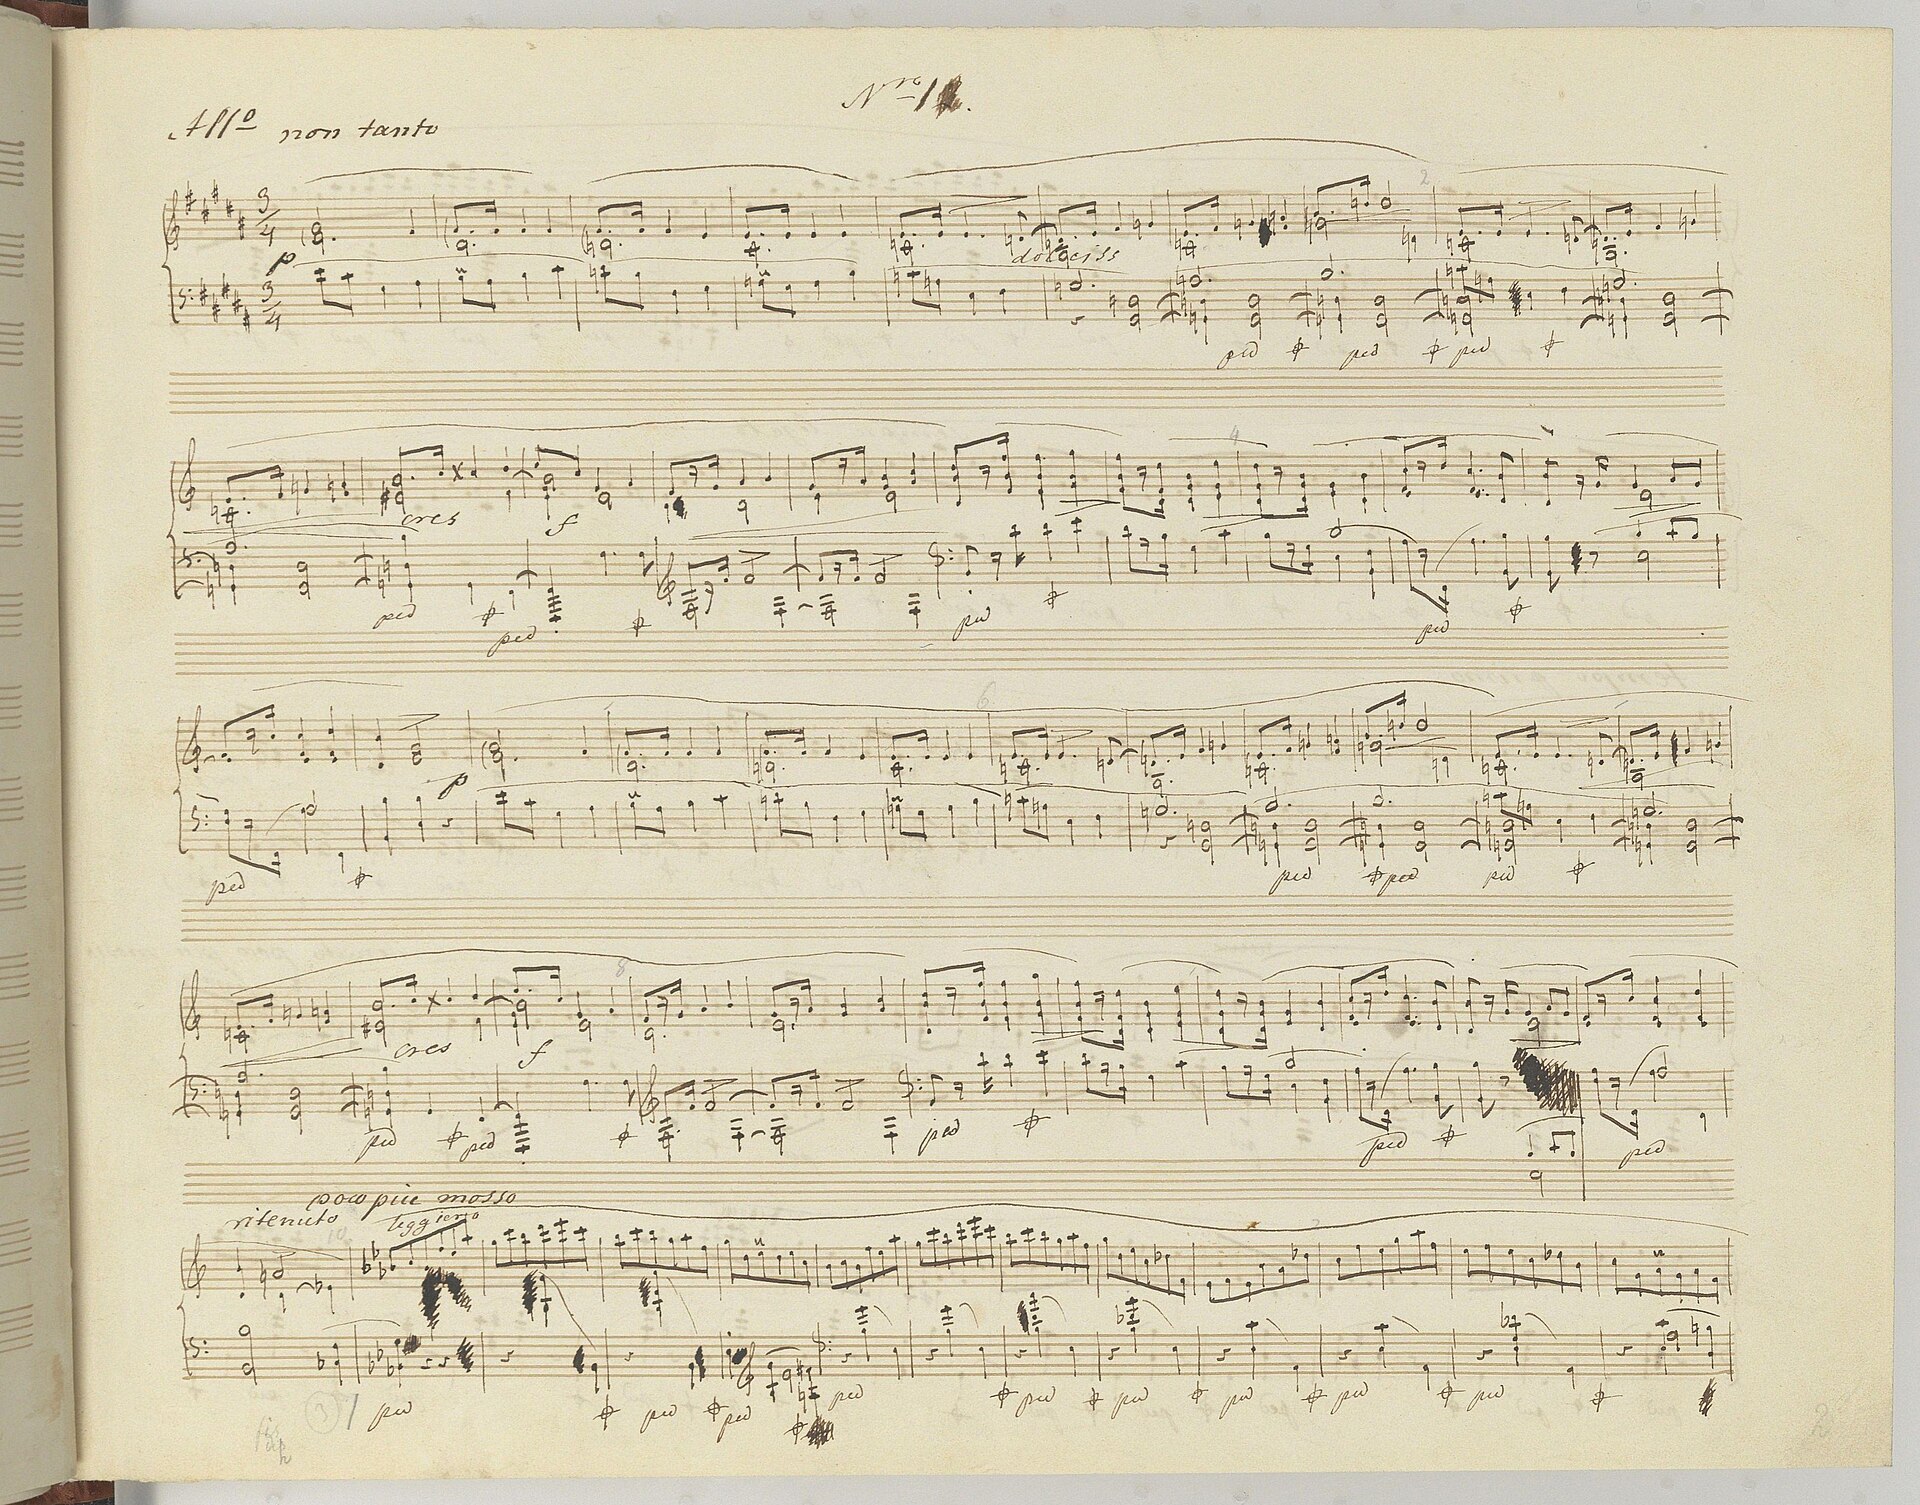 Nro 1
Allo non tanto
3/4
p
dolciss
3/4
2
ped ped ped
4
cres f
ped ped ped ped
6
p
ped ped ped ped
8
cres f
ped ped ped ped ped
poco piu mosso
ritenuto leggiero
10
ped ped ped ped ped ped ped ped ped
3
2